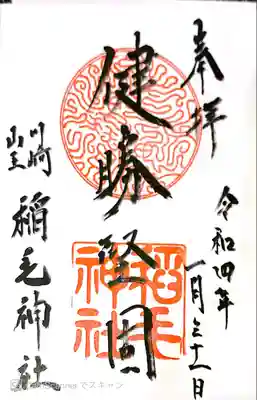 奉拝
令和四年
一月三十一日
健勝堅固
稲毛神社
川崎
山王
稲毛神社
でスキャン